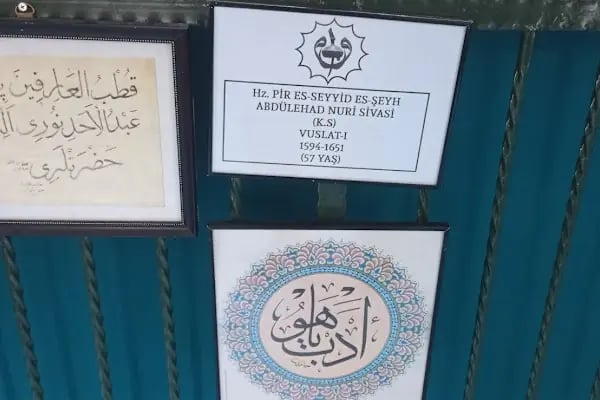 قطب العارفين
عبد الأحد نوري
حضرتلري
Hz. PİR ES-SEYYİD ES-ŞEYH
ABDÜLEHAD NURİ SİVASİ
(K.S)
VUSLAT-I
1594-1651
(57 YAŞ)
أدب يا هو